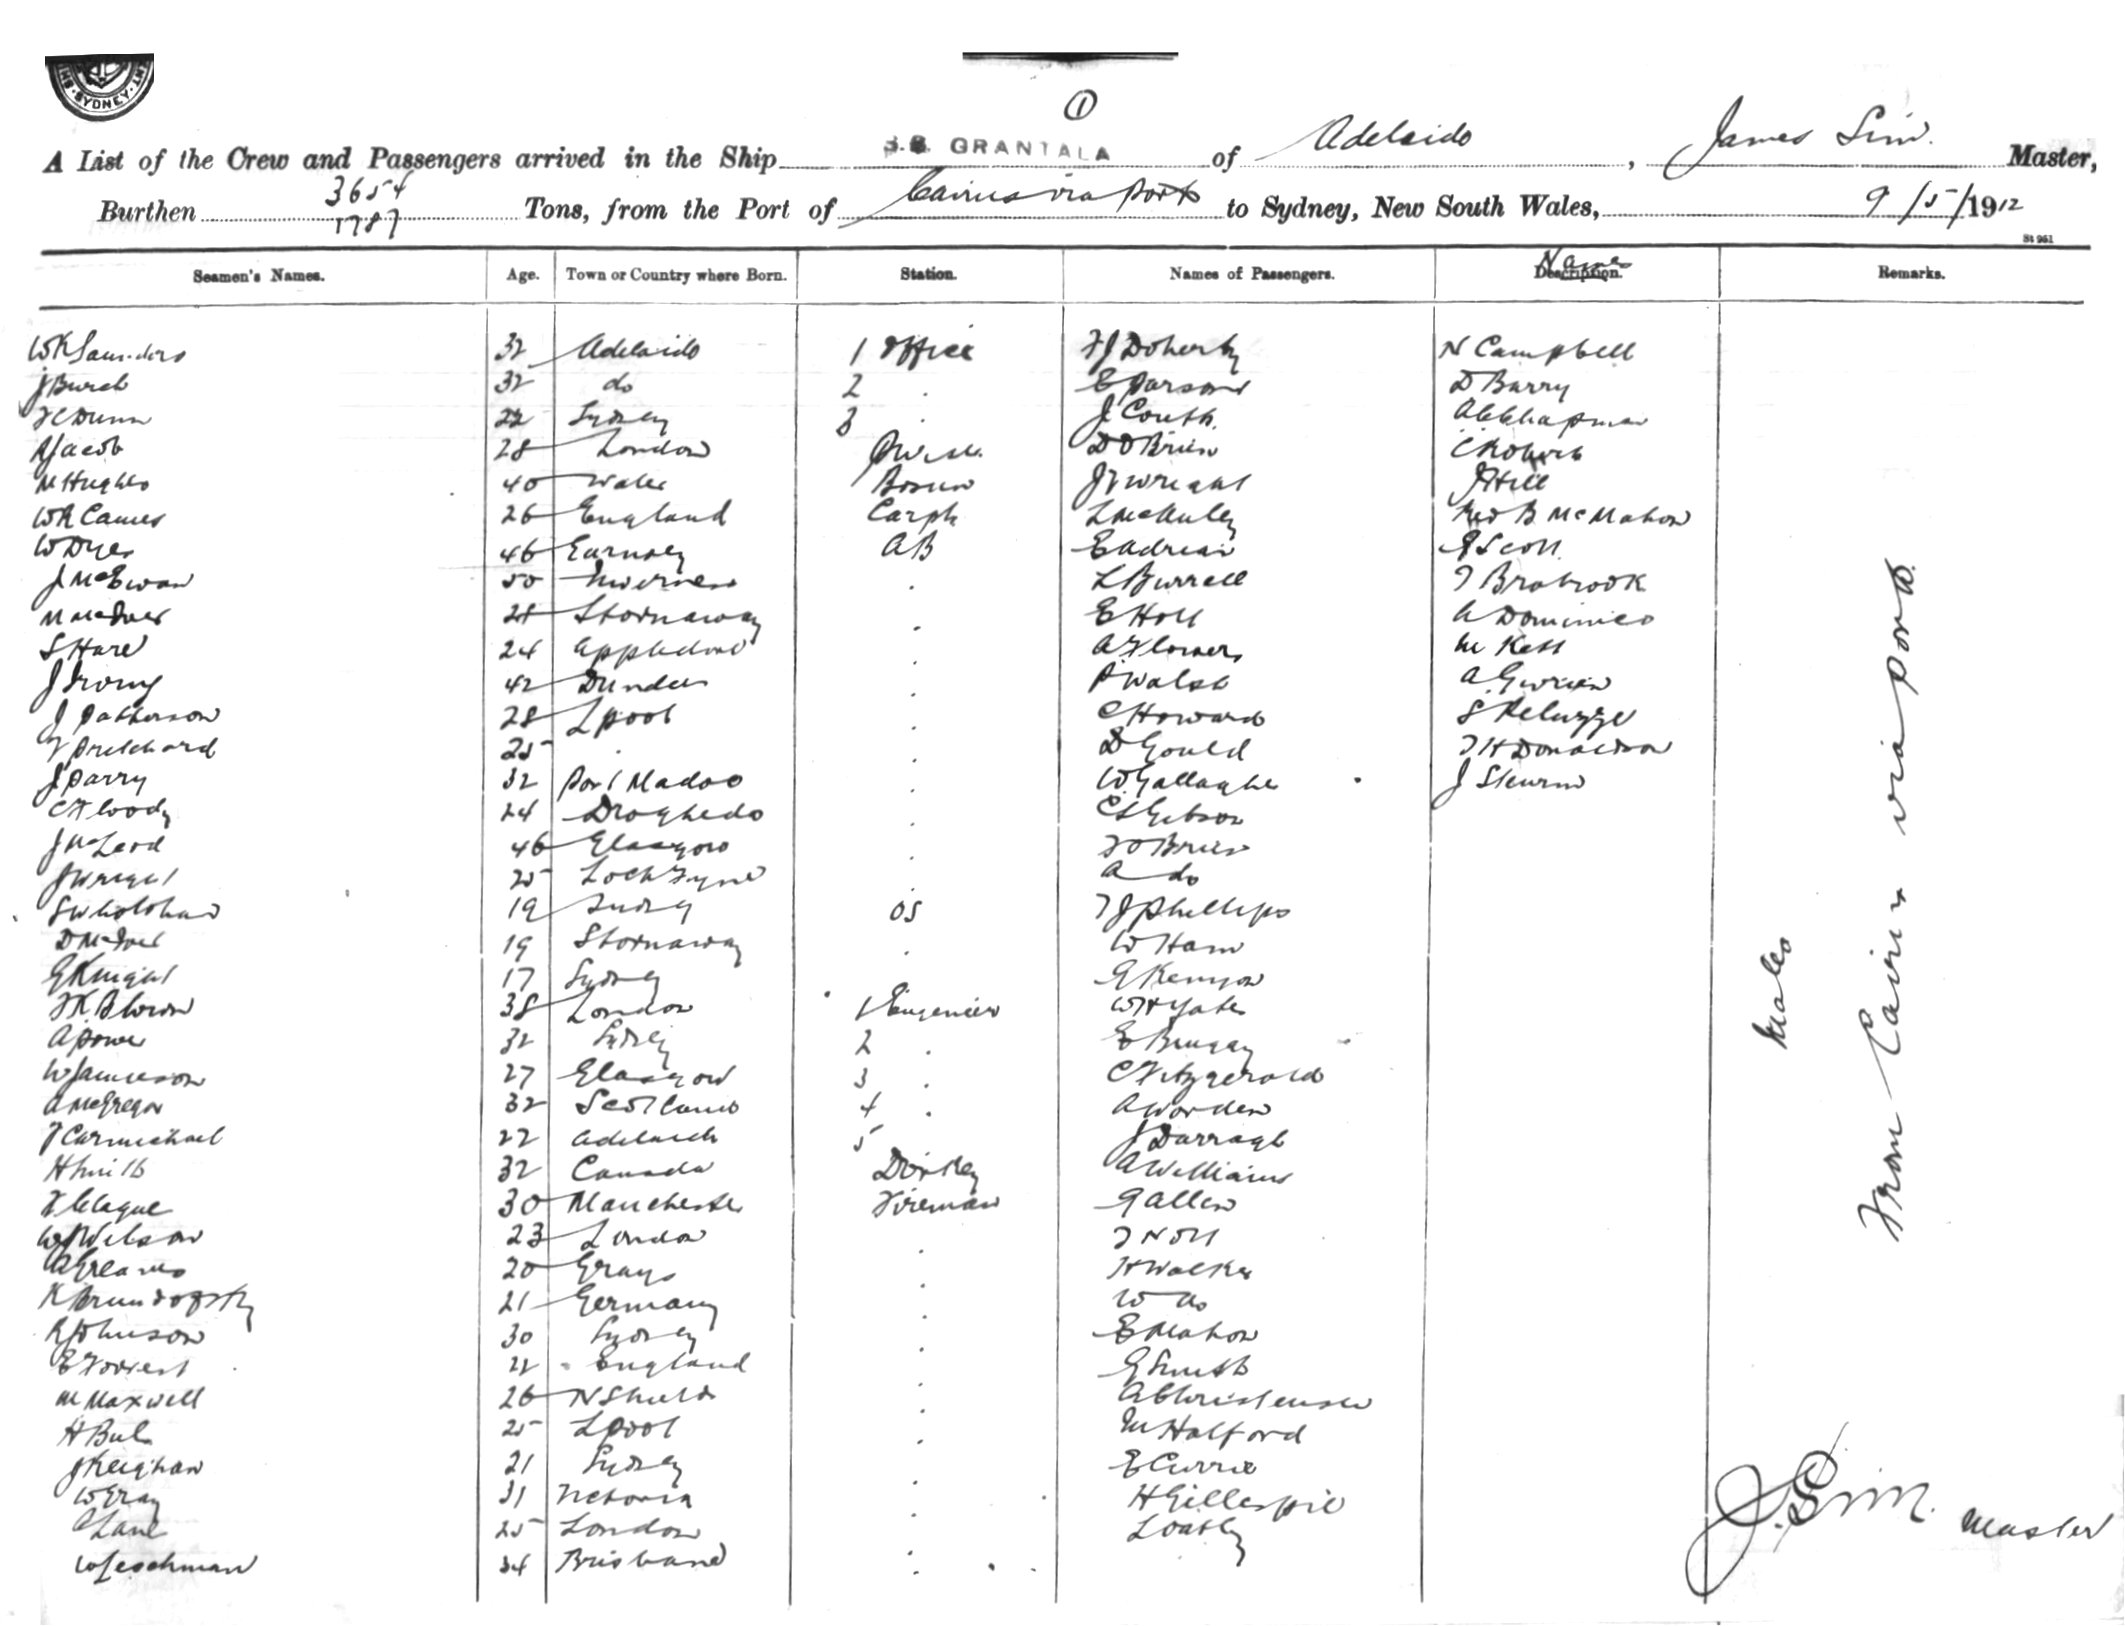 SYDNEY
1
A List of the Crew and Passengers arrived in the Ship S.S. GRANTALA of Adelaide, James Sim. Master,
Burthen 3654 1787 Tons, from the Port of Cairns via Ports to Sydney, New South Wales, 9/5/1912
St 951
Seamen's Names. Age. Town or Country where Born. Station. Names of Passengers. Description. Names Remarks.
W K Saunders 32 Adelaide 1 Office F J Doherty N Campbell
J Burch 32 do 2 . E Parsons D Barry
F C Dunn 22 Sydney 3 . J Couth A C Chapman
R Jacob 28 London D O Brien C Roberts
M Hughes 40 Wales Bosun J V Wright J Hill
W R Cames 26 England Carph L McAuley Med B McMahon
W Dyer 46 AB E Adrian J Scott
J McEwan 50 Inverness . L Burrell T Brabrook
M McIver 28 Stornaway . E Holl A Dominico
S Hare 24 Appledore . A Flowers M Kett
J Irony 42 Dundee . P Walsh A
J Patterson 28 Lpool . C Howard S
J Pritchard 25 . . D Gould T H Donaldson
J Parry 32 Port Madoc . W Gallagher J
C Floody 24 Drogheda . C S Gibson
J McLeod 46 Glasgow . T O Brien
J Wright 25 Loch Fyne . A do
S W Holohan 19 Sydney OS T J Phillips
D McIver 19 Stornaway . W Ham
G Knight 17 Sydney G Kenyon
F K Blown 38 London 1 Engenier W H Yates
A Power 32 Sydney 2 . E
W Jamieson 27 Glasgow 3 . C Fitzgerald
A McGregor 32 Scotland 4 . A Worden
J Carmichael 22 Adelaide 5 J Darragh
H Smith 32 Canada Donkey A Williams
F Clague 30 Manchester Fireman G Allen
W J Wilson 23 London . T Noll
A Greaves 20 Grays . H Walker
K 21 Germany . W do
R Johnson 30 Sydney . E Mahon
E Forrest 22 England . G Smith
M Maxwell 26 N Shields . A Christensen
H Bul 25 Lpool . M Halford
J Keighan 21 Sydney . E Currie
W Gray 31 Victoria . H Gillespie
C Lane 25 London . L Oatley
W Leschman 34 Brisbane .
Males
From Cairns via ports.
J. Sim. Master